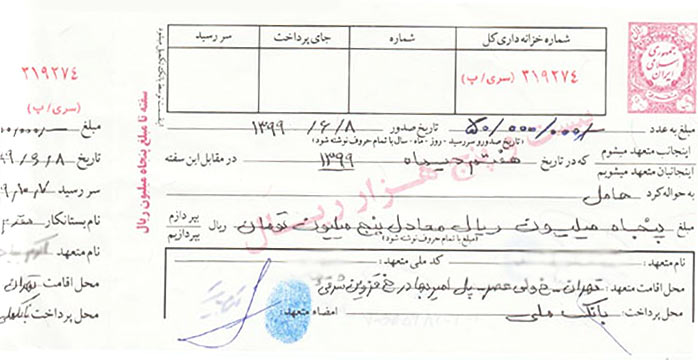 شماره خزانه داری کل
شماره
جای پرداخت
سر رسید
۳۱۹۲۷۴
(سری/ب)
جمهوری
اسلامی
ایران
۳۱۹۲۷۴
(سری/ب)
سفته تا مبلغ پنجاه میلیون ریال
بیست و پنج هزار ریال
مبلغ به عدد ۵۰/۰۰۰/۰۰۰/ تاریخ صدور ۱۳۹۹/۶/۸
(تاریخ صدور و سررسید - روز - ماه - سال با تمام حروف نوشته شود)
اینجانب متعهد میشوم
اینجانبان متعهد میشویم
که در تاریخ هفتم دیماه ۱۳۹۹ در مقابل این سفته
به حواله کرد حامل
مبلغ پنجاه میلیون ریال معادل پنج میلیون تومان ریال
بپردازم
بپردازیم
(مبلغ با تمام حروف نوشته شود)
نام متعهد: کد ملی متعهد:
محل اقامت متعهد: تهران - خ ولی عصر - پل امیربهادر خ قزوین شرقی
محل پرداخت: بانک ملی امضاء متعهد:
مبلغ
تاریخ ۹۹/۶/۸
سر رسید
نام بستانکار
نام متعهد
محل اقامت تهران
محل پرداخت بانک ملی